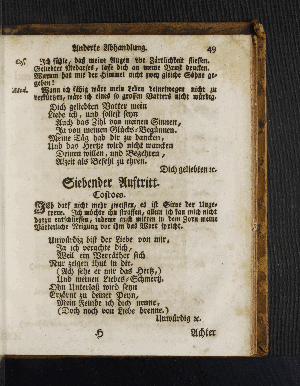 Anderte Abhandlung. 49
Cos. Ich fühle, daß meine Augen vor Zärtlichkeit fliessen.
Geliebter Medarses, lasse dich an meine Brust drucken.
Warum hat mir der Himmel nicht zwey gleiche Söhne ge-
geben!
Wann ich fähig wäre mein Leben deinetwegen nicht zu
verkürtzen, wäre ich eines so grossen Vatters nicht würdig.
Dich geliebten Vatter mein
Liebe ich, und sollest seyn
Auch das Zihl von meinen Sinnen,
Ja von meinem Glücks-Beginnen.
Meine Täg hab dir zu dancken,
Und das Hertze wird nicht wancken
Deinen willen, und Begehren,
Alzeit als Befehl zu ehren.
Dich geliebten ꝛc.
Siebender Auftritt.
Cosroes.
Ich darf nicht mehr zweiflen, es ist Siroe der Unge-
treue. Ich möchte ihn straffen, allein ich kan mich nicht
darzu entschliessen, indeme auch mitten in dem Zorn meine
Vätterliche Neigung vor ihm das Wort spricht.
Unwürdig bist der Liebe von mir,
Ja ich verachte dich,
Weil ein Verräther sich
Nur zeigen thut in dir.
(Ach sehe er nur das Hertz,)
Und meinen Liebes-Schmertz,
Ohn Unterlaß wird seyn
Erzörnt zu deiner Peyn,
Mein Feinde ich dich nenne,
(Doch noch von Liebe brenne.)
Unwürdig ꝛc.
H Achter